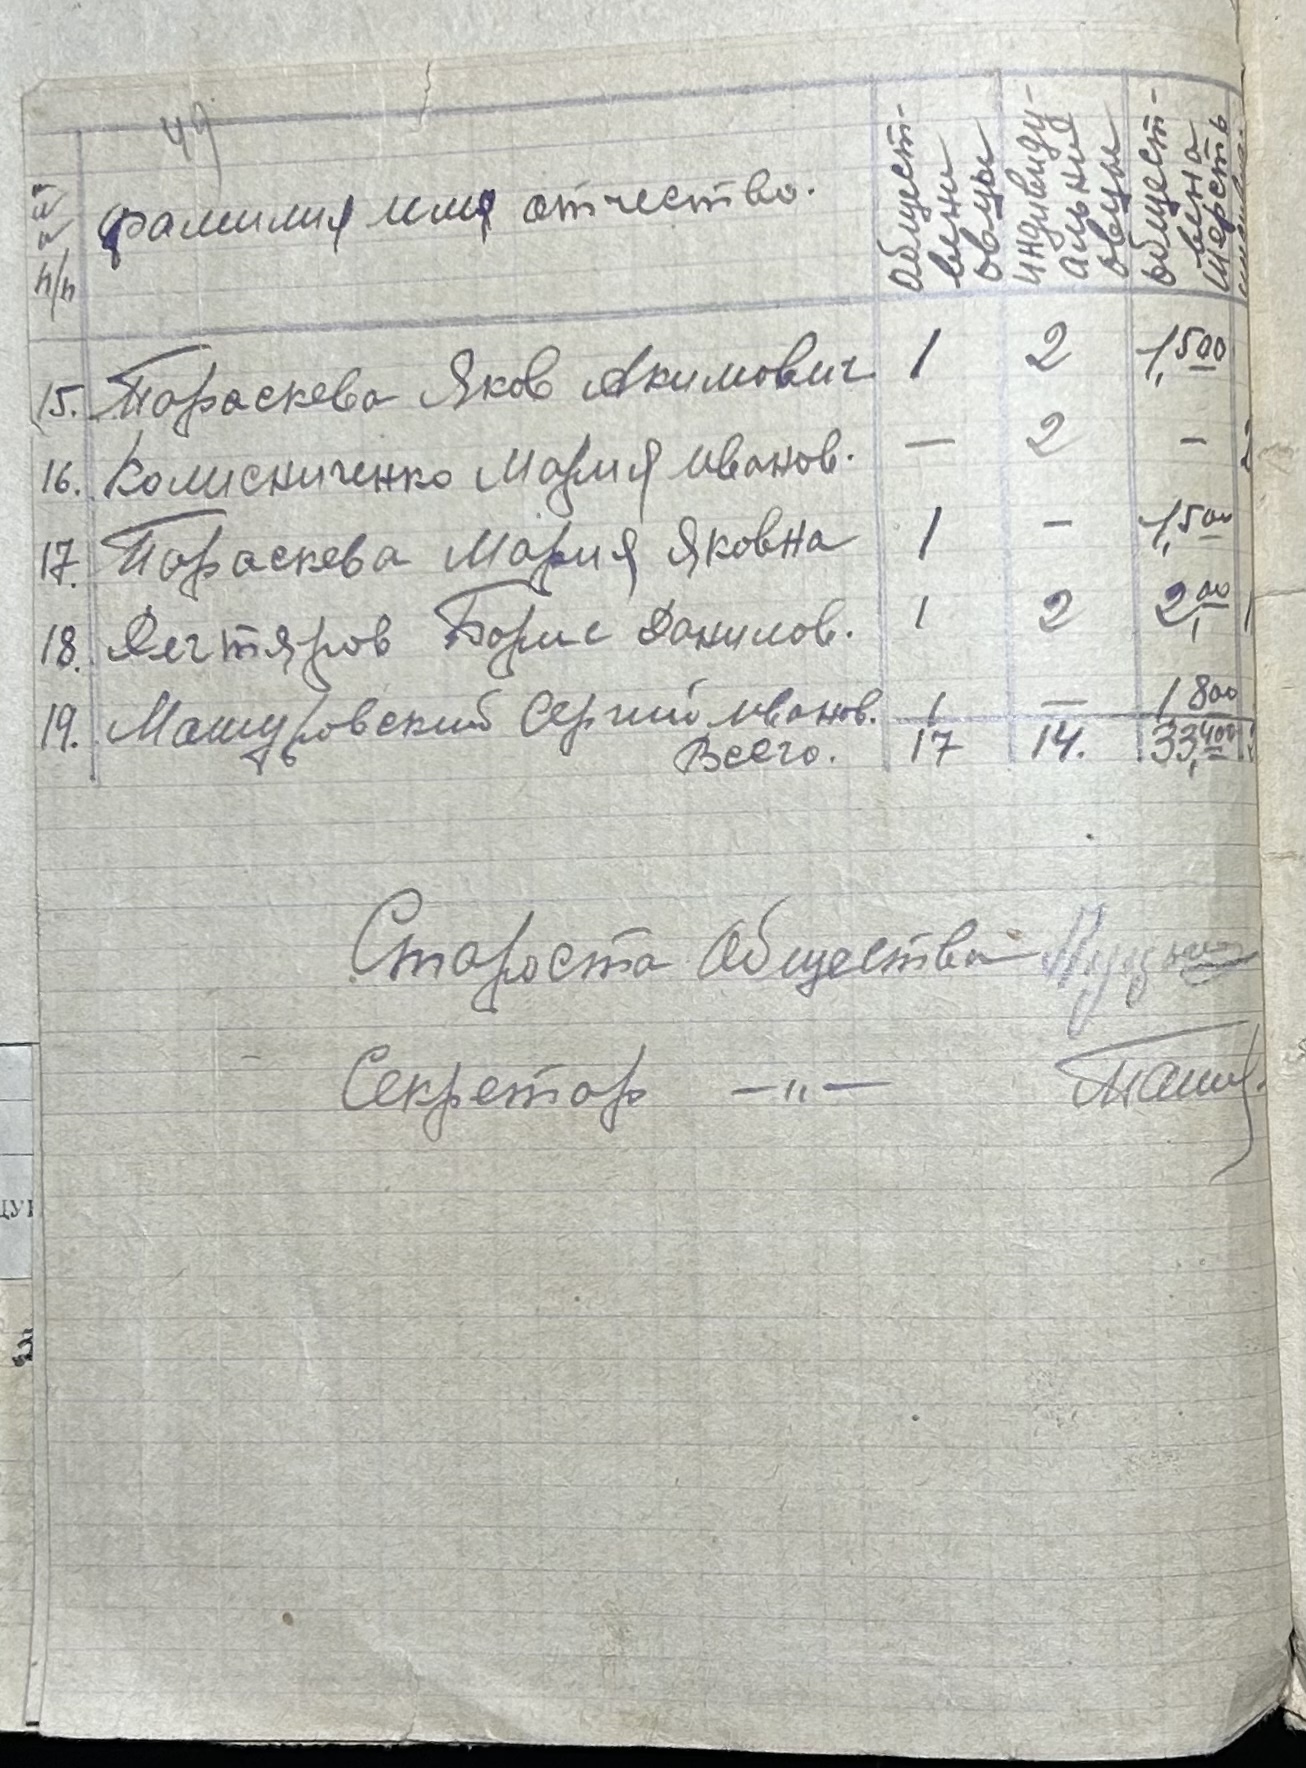 49
п/п фамилия имя отчество. Общест- вени овцы индивиду- альние овцы общест- венна шерсть
15. Параскева Яков Акимович 1 2 1,500
16. Колисниченко Мария Иванов. — 2 —
17. Параскева Мария Яковна 1 — 1,500
18. Дегтяров Борис Данилов. 1 2 2,00
19. Машуровский Сергий Иванов. 1 — 1800
Всего. 17 14. 33,400
Староста Общества
Секретар —"—